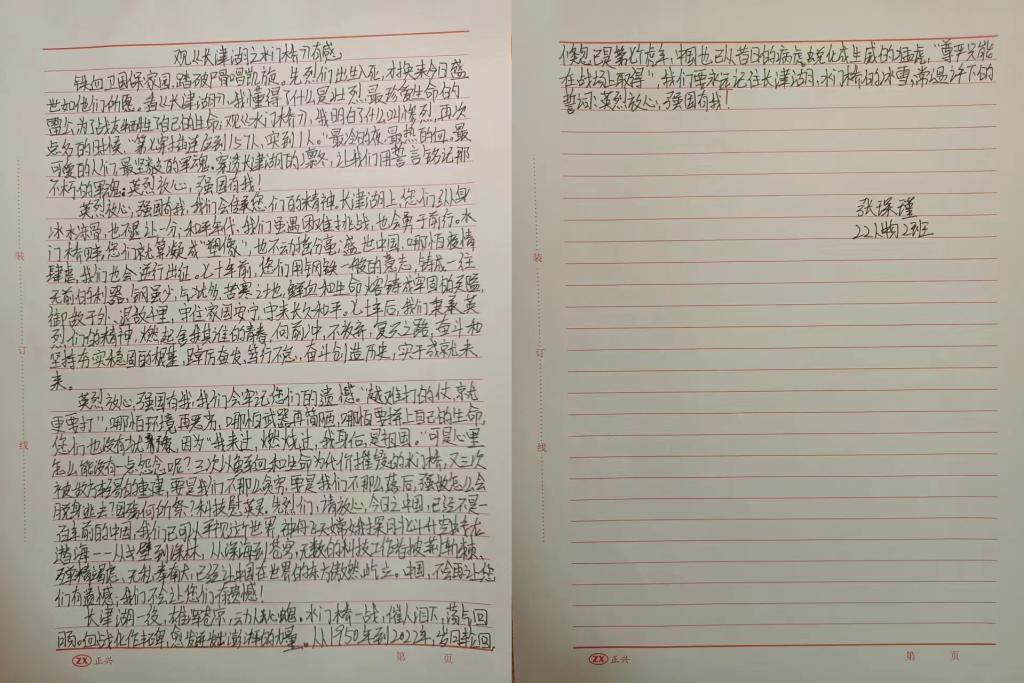 观《长津湖之水门桥》有感
铁血卫国保家园,踏破严霜唱凯旋。先烈们出生入死,才换来今日盛
世如他们所愿。看《长津湖》,我懂得了什么是壮烈,最珍重生命的
雷公为了战友牺牲了自己的生命;观《水门桥》,我明白了什么叫惨烈,再次
点名的时候,“第七穿插连应到157人,实到1人。”最冷的夜,最热的血。最
可爱的人们,最坚毅的军魂。穿透长津湖的凛冬,让我们用誓言铭记那
不朽的军魂:英烈放心,强国有我!
英烈放心,强国有我,我们会继承您们的精神。长津湖上,您们纵身
冰水冻骨,也不退让一分;和平年代,我们虽遇困难挑战,也会勇于前行。水
门桥畔,您们就算凝成“塑像”,也不动摇分毫;盛世中国,哪怕疫情
肆虐,我们也会逆行出征。七十年前,您们用钢铁一般的意志,铸成一往
无前的利器,钢虽少,气犹多,苦寒之地,鲜血和生命熔铸成牢固的
御敌于外,退敌千里,守住家国安宁,守来长久和平。七十年后,我们秉承英
烈们的精神,燃起舍我其谁的青春,向前冲,不放弃,复兴之路,奋斗和
坚持夯实稳固的根基,踔厉奋发,笃行不怠,奋斗创造历史,实干成就未
来。
英烈放心,强国有我,我们会牢记您们的遗憾。“越难打的仗,就
更要打”,哪怕环境再恶劣,哪怕武器再简陋,哪怕要拼上自己的生命,
您们也没有犹豫,因为“我来过,燃烧过,我身后,是祖国。”可是心里
怎么能没有一点怨念呢?三次以鲜血和生命为代价摧毁的水门桥,又三次
被敌方轻易的重建,要是我们不那么贫穷,要是我们不那么落后,强敌怎么会
脱身逃去?国殇何所祭?科技慰英灵。先烈们,请放心,今日之中国,已经不是
百年前的中国,我们已可以平视这个世界,神舟飞天嫦娥探月北斗
潜海——从戈壁到深林,从深海到苍穹,无数的科技工作者披荆斩棘、
殚精竭虑、无私奉献,已经让中国在世界的东方傲然屹立。中国,不会再让您
们有遗憾,我们不会让您们有遗憾!
长津湖一役,雄浑苍凉,动人心魄。水门桥一战,催人泪下,荡气回
肠。何战化作丰碑,愈发迸发澎湃的力量。从1950年到2022年,岁月轮回,
倏忽已是第六个虎年,中国也已从昔日的病虎蜕化成生威的猛虎,“尊严只能
在战场上取得”,我们要永远记住长津湖、水门桥的冰雪,常温许下的
誓词:英烈放心,强国有我!
张琛瑾
22人物2班
装
订
线
正兴
第 页
装
订
线
正兴
第 页